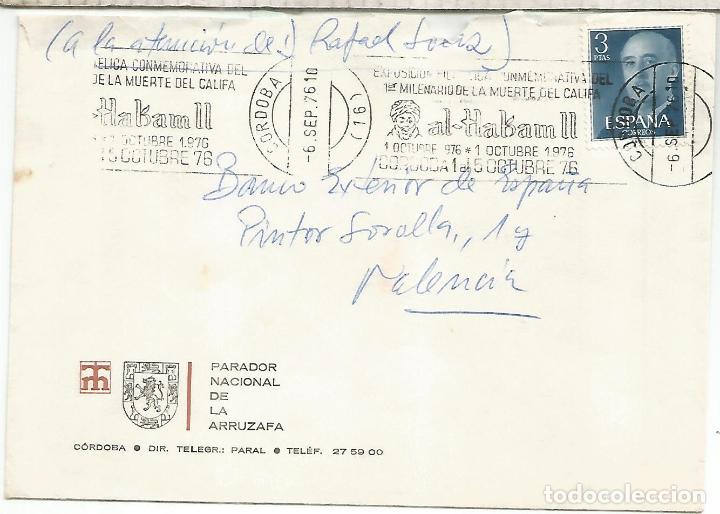 (a la atención de:) Rafael
ELICA CONMEMORATIVA DEL
DE LA MUERTE DEL CALIFA
al-HaKam II
1 OCTUBRE 1.976
15 OCTUBRE 76
CORDOBA
-6.SEP.76 10
(16)
EXPOSICION FILATELICA CONMEMORATIVA DEL
1er MILENARIO DE LA MUERTE DEL CALIFA
al-HaKam II
1 OCTUBRE 976 * 1 OCTUBRE 1.976
CORDOBA 1 al 15 OCTUBRE 76
3
PTAS
ESPAÑA
CORREOS
CORDOBA
-6.SEP.76 10
Banco Exterior de España
Pintor Sorolla, 1 y
Valencia
PARADOR
NACIONAL
DE
LA
ARRUZAFA
CÓRDOBA ● DIR. TELEGR.: PARAL ● TELÉF. 27 59 00
todocoleccion.net